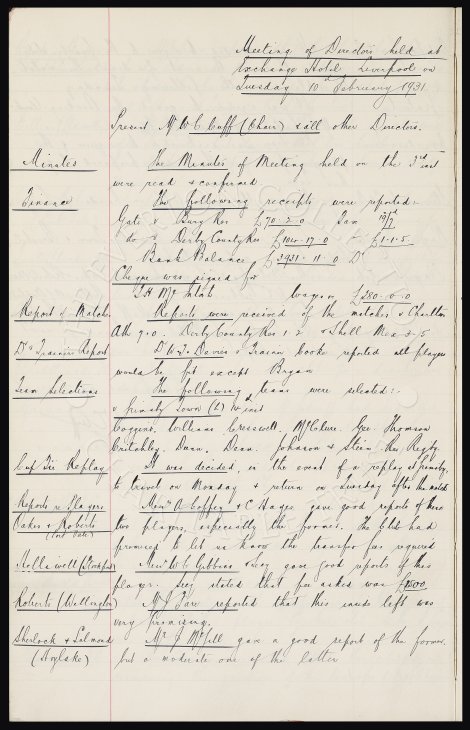 Meeting of Directors held at
Exchange Hotel Liverpool on
Tuesday 10th February 1931
Present Mr W C Cuff (Chair) & all other Directors.
Minutes The Minutes of Meeting held on the 3rd inst
were read & confirmed
Finance The following receipts were reported:-
Gate v Bury Res £70-2-0 Tax
do v Derby County Res £104-17-0 £1-1-5
Bank Balance £3931-11-0 Dr
Cheque was signed for
T H McIntosh Wages £280-0-0
Report of Matches Reports were received of the matches v Charlton
Ath 7-0. Derby County Res 1-2 & Shell Mex 3-5
Trainers Report & Trainer Cooke reported all players
would be fit except Bryan
Team Selections The following teams were selected:-
v Grimsby Town (L) inst
Coggins, Williams Cresswell, McClure, Gee Thomson
Critchley, Dunn, Dean. Johnson & Stein. Res Rigby.
Cup Tie Replay It was decided, in the event of a replay at Grimsby,
to travel on Monday & return on Tuesday after the match
Reports re Players Messrs A Coffey & C Hayes gave good reports of these
Oakes & Roberts two players, especially the former. The Club had
(Port Vale) promised to let us know the transfer fee required
Hollawell (Stockport) Messrs W C Gibbins & gave good reports of this
player. stated that fee asked was £1500
Roberts (Wellington) Mr J Fare reported that this inside left was
very promising.
Sherlock & Salmond Mr J McGill gave a good report of the former
(Hoylake) but a moderate one of the latter